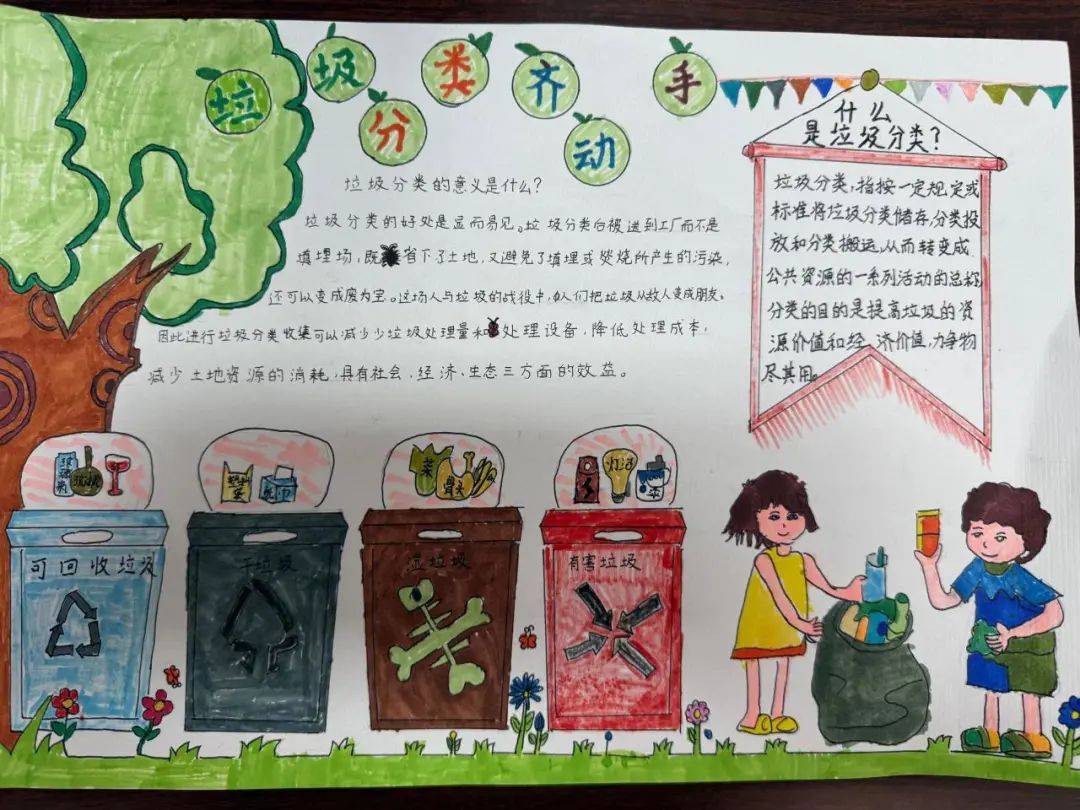 垃圾分类齐动手
垃圾分类的意义是什么?
垃圾分类的好处是显而易见。垃圾分类后被送到工厂而不是
填埋场,既省下了土地,又避免了填埋或焚烧所产生的污染,
还可以变成废为宝。这场人与垃圾的战役中,人们把垃圾从敌人变成朋友。
因此进行垃圾分类收集可以减少少垃圾处理量和处理设备,降低处理成本,
减少土地资源的消耗,具有社会、经济、生态三方面的效益。
什么
是垃圾分类?
垃圾分类,指按一定规定或
标准将垃圾分类储存,分类投
放和分类搬运,从而转变成
公共资源的一系列活动的总称
分类的目的是提高垃圾的资
源价值和经济价值,力争物
尽其用。
菜
骨头
灯泡
可回收垃圾
干垃圾
湿垃圾
有害垃圾